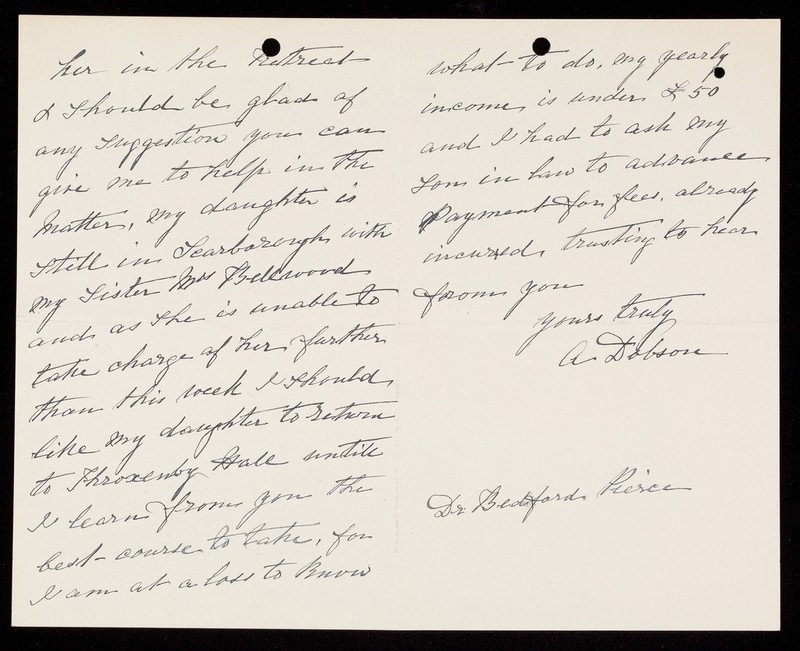 her in the Retreat
& I should be glad of
any suggestion you can
give me to help in the
matter, my daughter is
still in Scarborough with
my Sister Mrs Bellwood
and as she is unable to
take charge of her further
than this week I should
like my daughter to return
to Throxenby Hall untill
I learn from you the
best course to take, for
I am at a loss to know
what to do, my yearly
income is under £50
and I had to ask my
Son in law to advance
Payment for fees, already
incured, trusting to hear
from you
yours truly
A Dobson
Dr Bedford Pierce